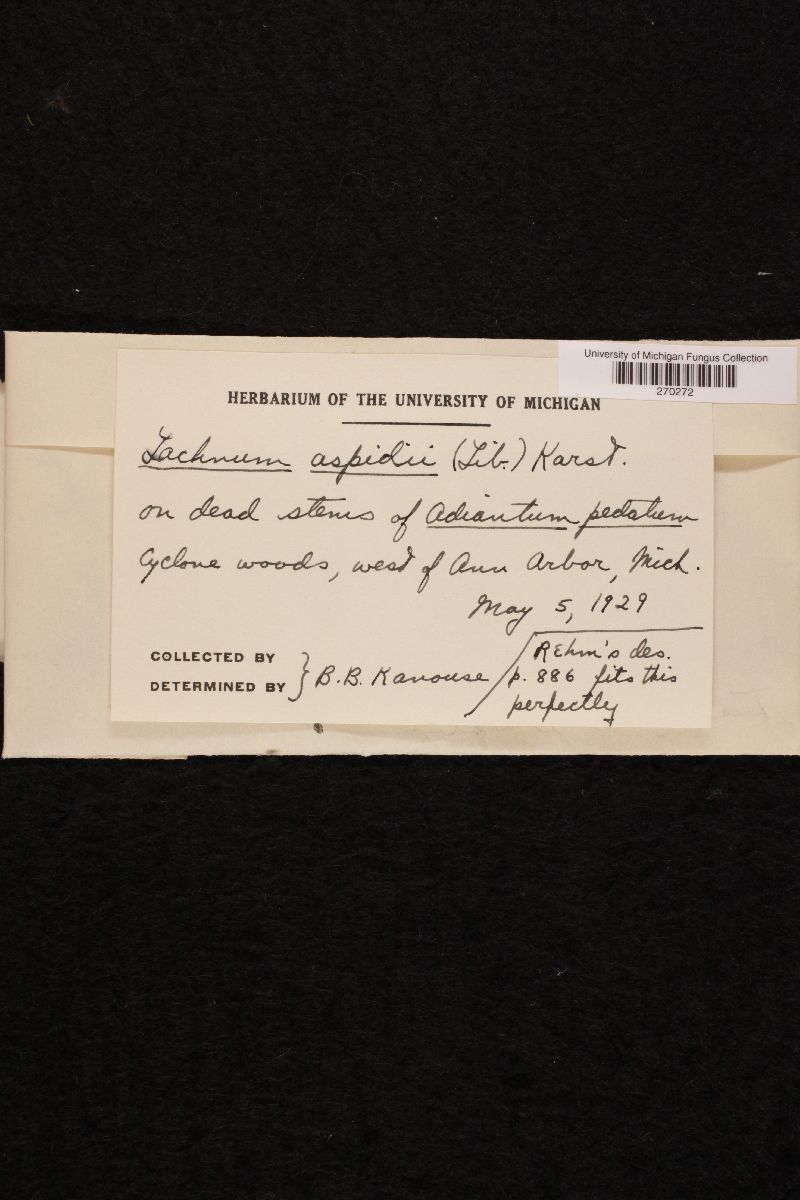 University of Michigan Fungus Collection
270272
HERBARIUM OF THE UNIVERSITY OF MICHIGAN
Lachnum aspidii (Lib.) Karst.
on dead stems of Adiantum pedatum
Cyclone woods, west of Ann Arbor, Mich.
May 5, 1929
COLLECTED BY
DETERMINED BY } B.B. Kanouse
REhm's des.
p. 886 fits this
perfectly